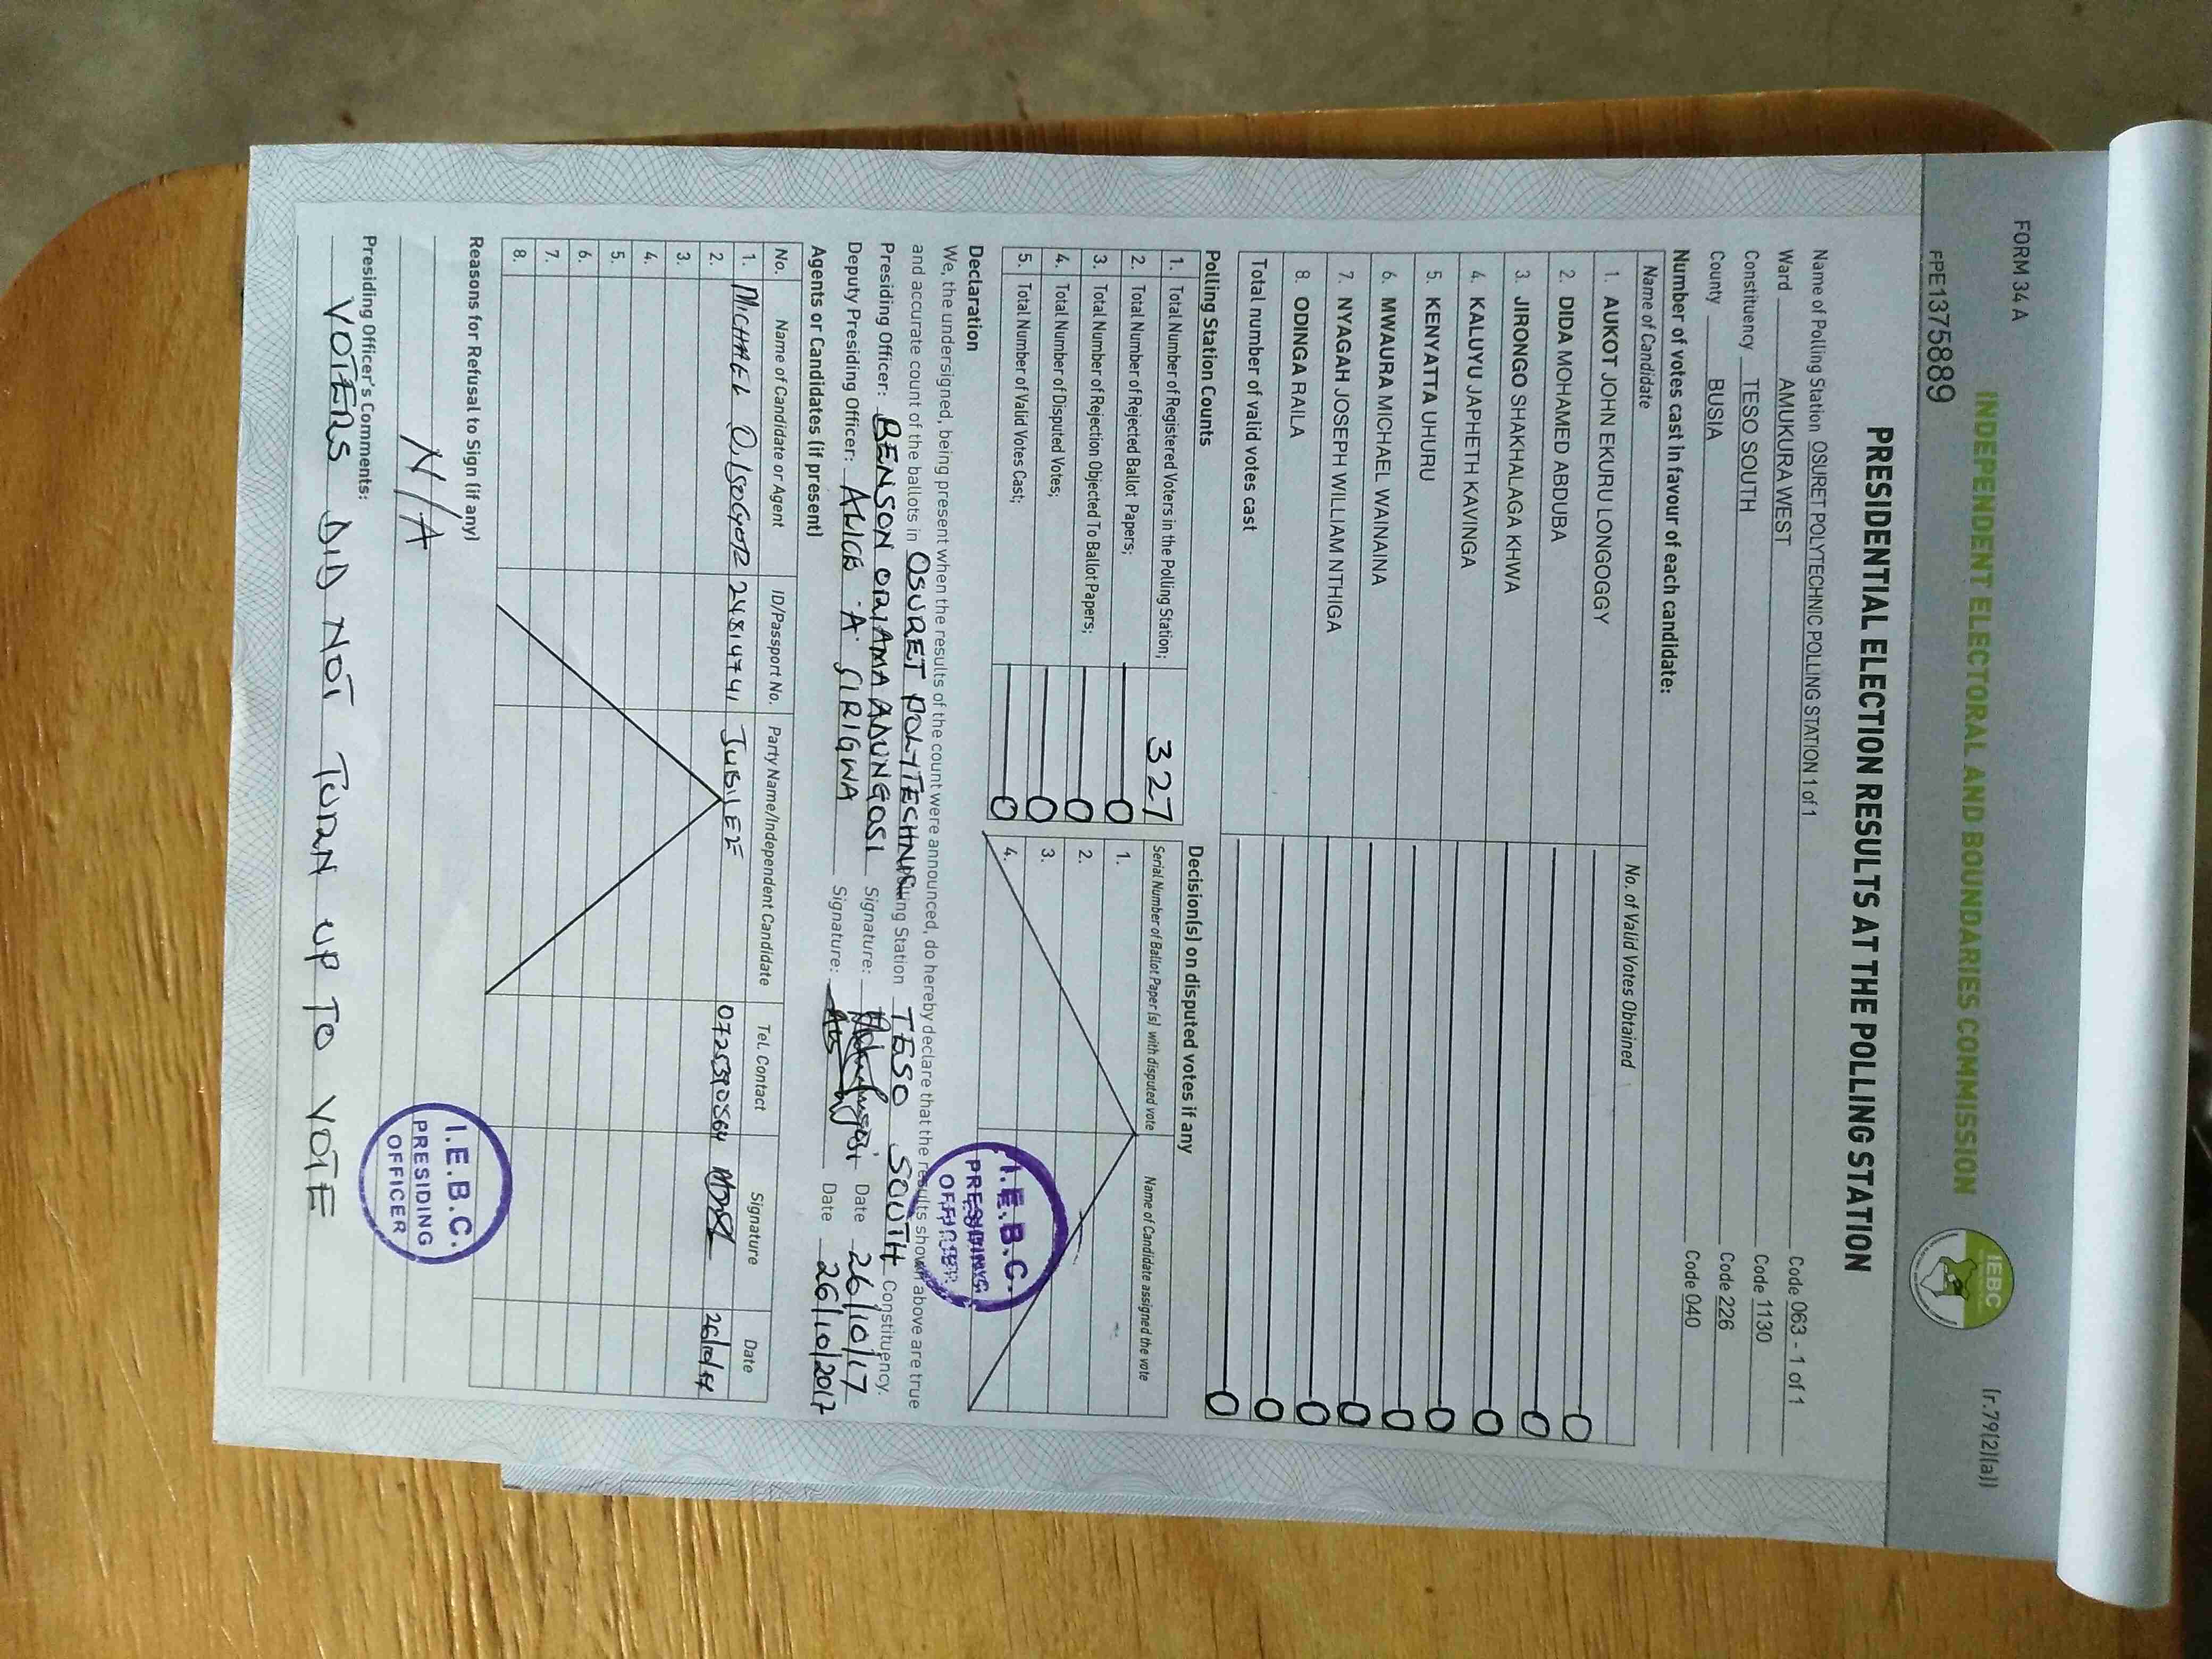 FORM 34 A
(r.79(2)(a))
INDEPENDENT ELECTORAL AND BOUNDARIES COMMISSION
IEBC
FPE1375889
PRESIDENTIAL ELECTION RESULTS AT THE POLLING STATION
Name of Polling Station OSURET POLYTECHNIC POLLING STATION 1 of 1 Code 063 - 1 of 1
Ward AMUKURA WEST Code 1130
Constituency TESO SOUTH Code 226
County BUSIA Code 040
Number of votes cast in favour of each candidate:
Name of Candidate No. of Valid Votes Obtained
1. AUKOT JOHN EKURU LONGOGGY 0
2. DIDA MOHAMED ABDUBA 0
3. JIRONGO SHAKHALAGA KHWA 0
4. KALUYU JAPHETH KAVINGA 0
5. KENYATTA UHURU 0
6. MWAURA MICHAEL WAINAINA 0
7. NYAGAH JOSEPH WILLIAM NTHIGA 0
8. ODINGA RAILA 0
Total number of valid votes cast 0
Polling Station Counts
1. Total Number of Registered Voters in the Polling Station; 327
2. Total Number of Rejected Ballot Papers; 0
3. Total Number of Rejection Objected To Ballot Papers; 0
4. Total Number of Disputed Votes; 0
5. Total Number of Valid Votes Cast; 0
Decision(s) on disputed votes if any
Serial Number of Ballot Paper (s) with disputed vote Name of Candidate assigned the vote
1.
2.
3.
4.
I.E.B.C.
PRESIDING
OFFICER
Declaration
We, the undersigned, being present when the results of the count were announced, do hereby declare that the results shown above are true
and accurate count of the ballots in OSURET POLYTECHNIC Polling Station TESO SOUTH Constituency.
Presiding Officer: BENSON ORIAMA AMUNGOSI Signature: Date 26/10/17
Deputy Presiding Officer: ALICE A. SIRIGWA Signature: Date 26/10/2017
Agents or Candidates (if present)
No. Name of Candidate or Agent ID/Passport No. Party Name/Independent Candidate Tel. Contact Signature Date
1. MICHAEL 24814741 JUBILEE 0725390564
2.
3.
4.
5.
6.
7.
8.
Reasons for Refusal to Sign (if any)
N/A
I.E.B.C.
PRESIDING
OFFICER
Presiding Officer's Comments:
VOTERS DID NOT TURN UP TO VOTE